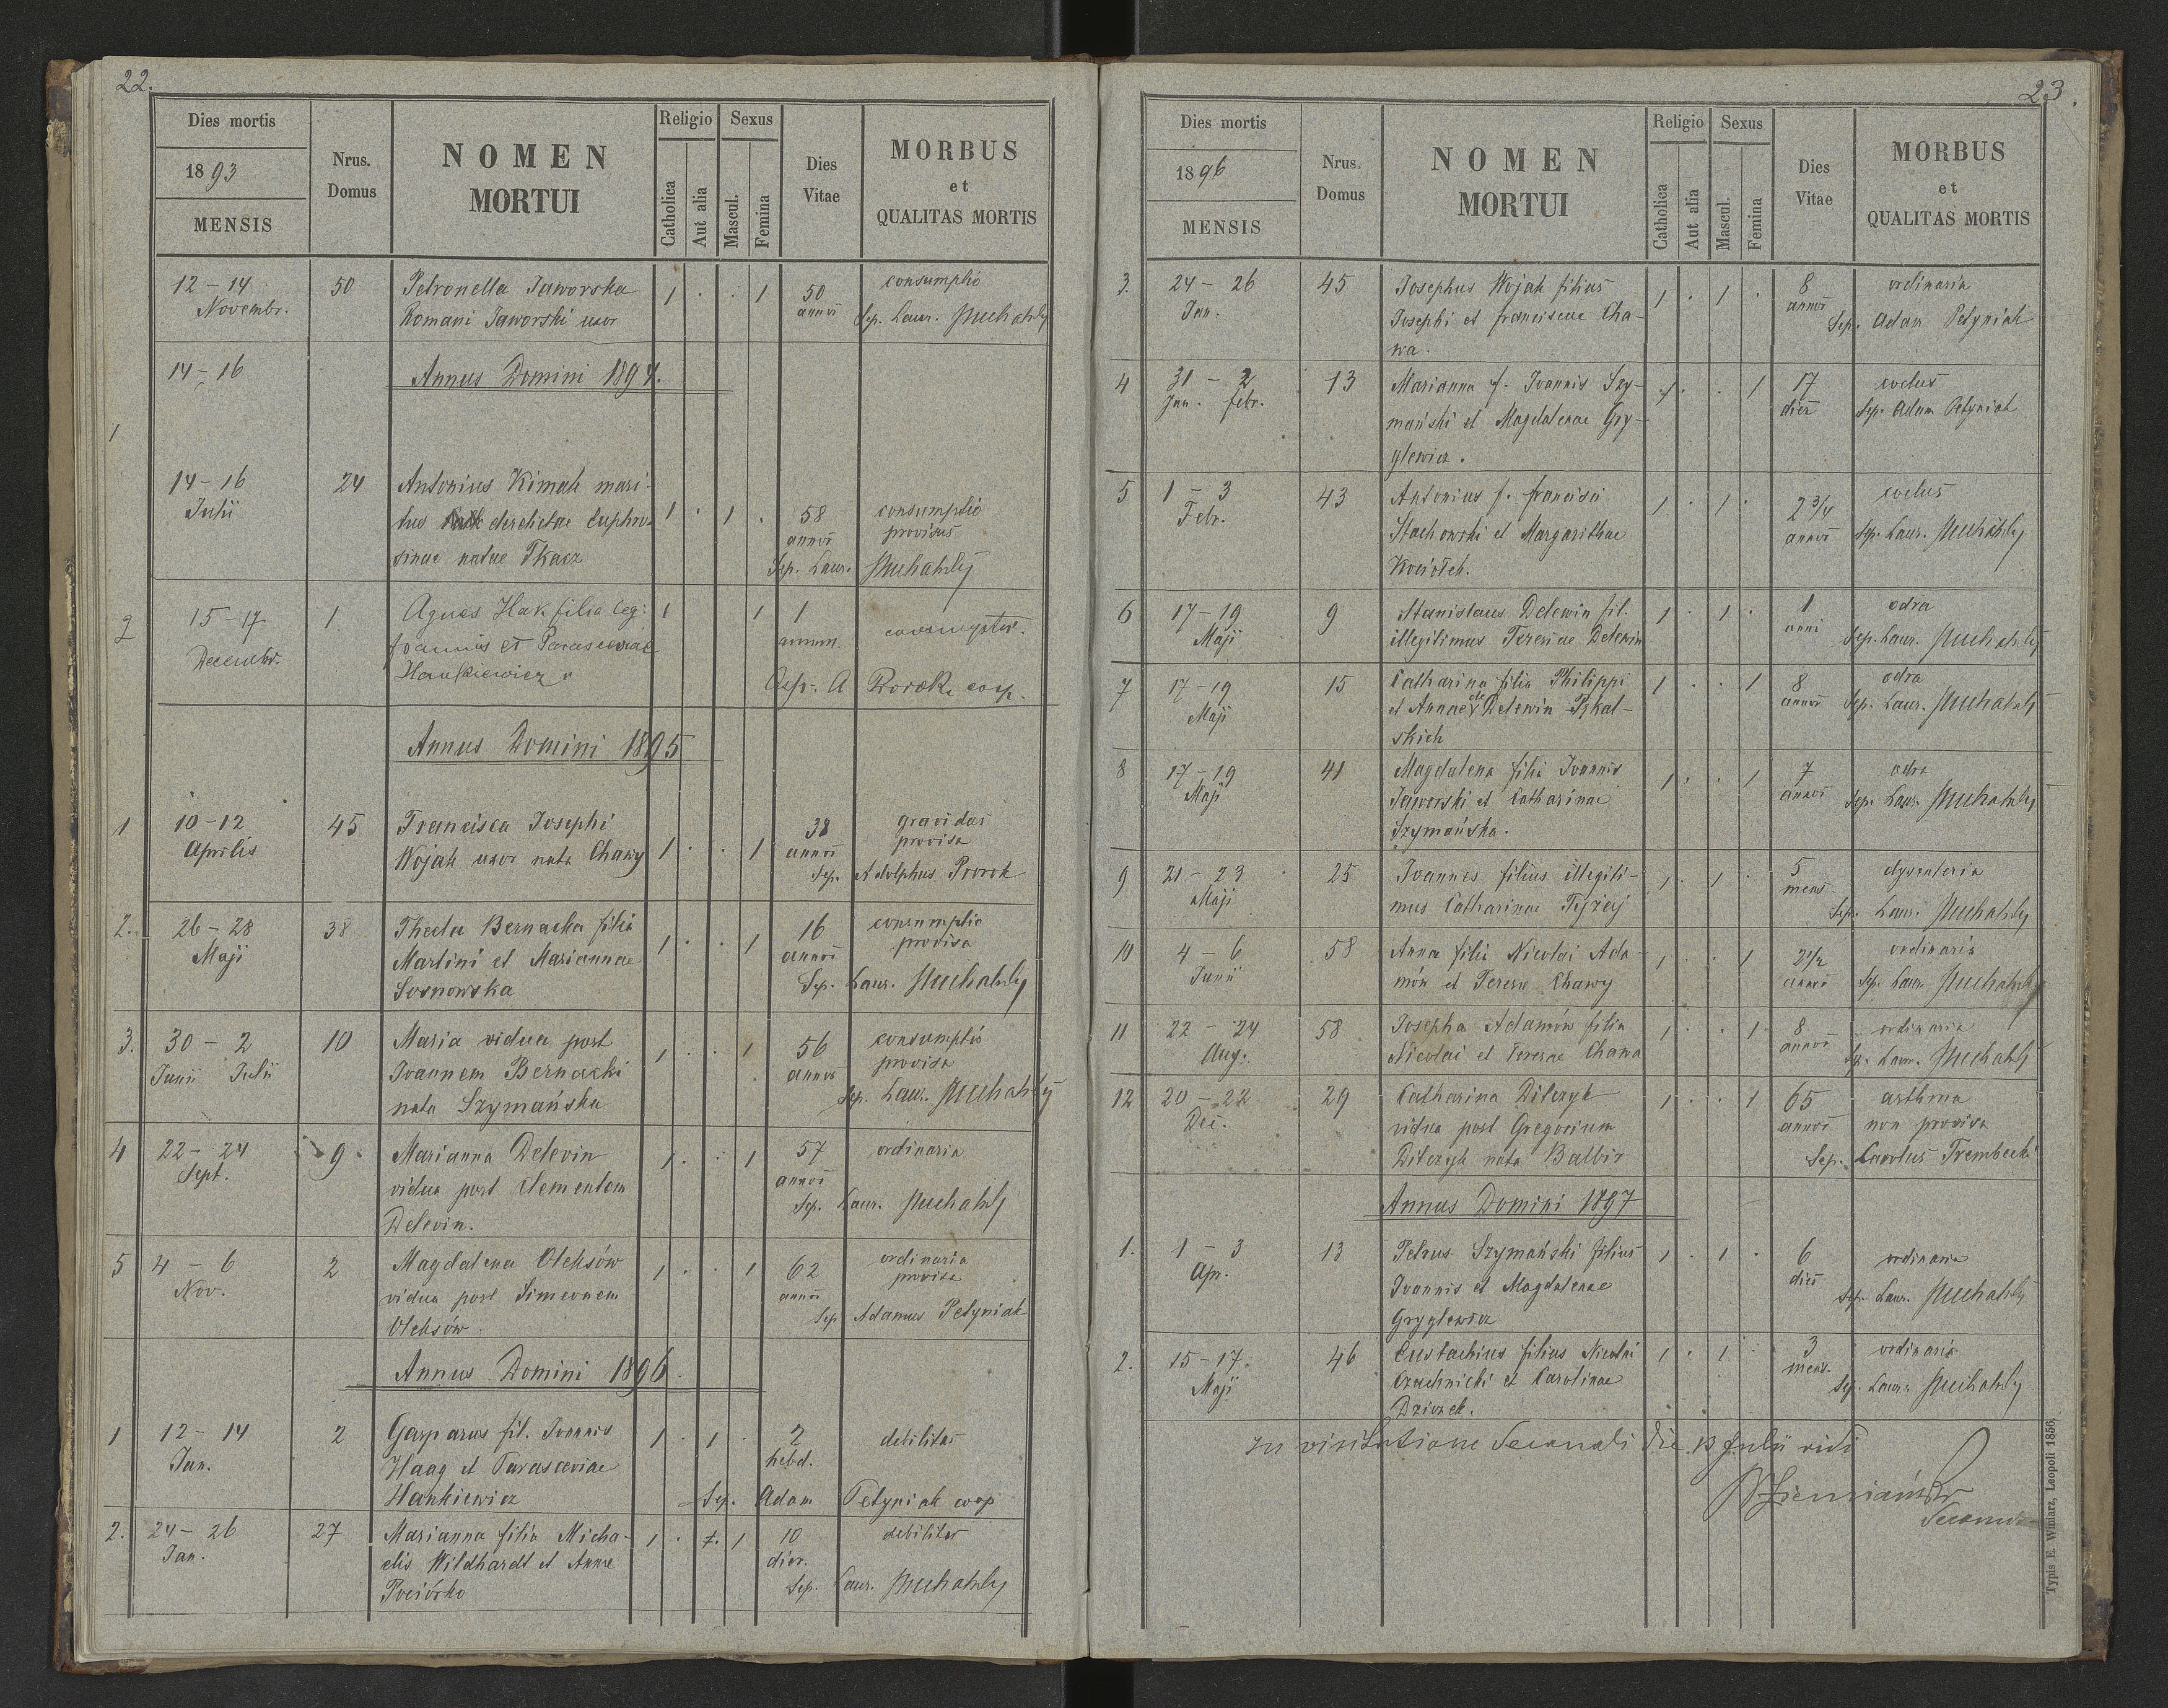 22.
Dies mortis
1893
MENSIS
Nrus. Domus
NOMEN MORTUI
Religio
Catholica
Aut alia
Sexus
Mascul.
Femina
Dies Vitae
MORBUS et QUALITAS MORTIS
12 - 14 50 Petronella Jaworska 1 . . 1 50 consumptio
Novembr. Romani Jaworski uxor annos Sep. Laur. Puchalsky
14 - 16 Annus Domini 1894.
1
14 - 16 24 Antonius Kimak mari-
Julii tus derelictae Euphro- 1 . 1 . 58 consumptio
annos provisus
sinae natae Tkacz Sep. Laur. Puchalsky
2 15 - 17 1. Agnes Hak filia leg. 1 1 1
Decembr. Joannis et Parasceviae annum.
Hankiewicz Sep. A Prorok coop.
Annus Domini 1895
1 10 - 12 45 Francisca Josephi 38 gravidas
Aprilis Wojak uxor nata Chawy 1 . . 1 annos provisa
Sep. Adolphus Prorok
2. 26 - 28 38 Thecla Bernacka filia 16 consumptio
Maji Martini et Mariannae 1 . . 1 annos provisa
Sosnowska Sep. Laur. Puchalsky
3. 30 - 2 10 Maria vidua post 56 consumptio
Junii Julii Joannem Bernacki 1 . . 1 annos provisa
nata Szymańska Sep. Laur. Puchalsky
4 22 - 24 9 Marianna Delevin 1 . . 1 57 ordinaria
Sept. vidua post Clementem annos
Delevin. Sep. Laur. Puchalsky
5 4 - 6 2 Magdalena Oleksów 1 . . 1 62 ordinaria
Nov. vidua post Simeonem annos provisa
Oleksów. Sep. Adamus Petyniak
Annus Domini 1896.
1 12 - 14 2 Gasparus fil. Joannis 1 . 1 . 2 debilitas
Jan. Haag et Parasceviae hebd.
Hankiewicz Sep. Adam Petyniak coop
2. 24 - 26 27 Marianna filia Micha- 1 . 1 10 debilitas
Jan. elis Wildhardt et Annae dier.
Pociórko Sep. Laur. Puchalsky
23.
Dies mortis
1896
MENSIS
Nrus. Domus
NOMEN MORTUI
Religio
Catholica
Aut alia
Sexus
Mascul.
Femina
Dies Vitae
MORBUS et QUALITAS MORTIS
3. 24 - 26 45 Josephus Wojak filius 1 . 1 . 8 ordinaria
Jan. Josephi et Franciscae Cha- annos Sep. Adam Petyniak
wa.
4 31 - 2 13 Marianna f. Joannis Szy- 1 . . 1 17
Jan. febr. mański et Magdalenae Gry- dies Sep. Adam Petyniak
glewicz.
5 1 - 3 43 Antonius f. Francisci 1 . 1 . 2 3/4
Febr. Stachowski et Margarithae annos Sep. Laur. Puchalsky
Kociołek.
6 17 - 19 9 Stanislaus Delewin fil. 1 . 1 . 1 odra
Maji illegitimus Teresiae Delewin anni Sep. Laur. Puchalsky
7 17 - 19 15 Catharina filia Philippi 1 . . 1 8 odra
Maji et Annae de Delewin annos Sep. Laur. Puchalsky
skich
8 17 - 19 41 Magdalena filia Joannis 1 . . 1 7 odra
Maji Jaworski et Catharinae annos Sep. Laur. Puchalsky
Szymańska.
9 21 - 23 25 Joannes filius illegiti- 1 . 1 . 5 dysenteria
Maji mus Catharinae mens. Sep. Laur. Puchalsky
10 4 - 6 58 Anna filia Nicolai Ada- 1 . . 1 2 1/2 ordinaria
Junii mów et Teresae Chawy annos Sep. Laur. Puchalsky
11 22 - 24 58 Josepha Adamów filia 1 . . 1 8 ordinaria
Aug. Nicolai et Teresae Chawa annos Sep. Laur. Puchalsky
12 20 - 22 29 Catharina Diterzyk 1 . . 1 65 asthma
Dec. vidua post Gregorium annos non provisa
Diterzyk nata Balbir Sep. Carolus Trembecki
Annus Domini 1897
1. 1 - 3 13 Petrus Szymański filius 1 . 1 . 6 ordinaria
Apr. Joannis et Magdalenae dies Sep. Laur. Puchalsky
Gryglewicz
2. 15 - 17 46 Eustachius filius Nicolai 1 . 1 . 3 ordinaria
Maji Czuchnicki et Carolinae mens. Sep. Laur. Puchalsky
Dziczek.
In visitatione Decanali die 13 Julii vidi
Typis E. Winiarz, Leopoli 1856.